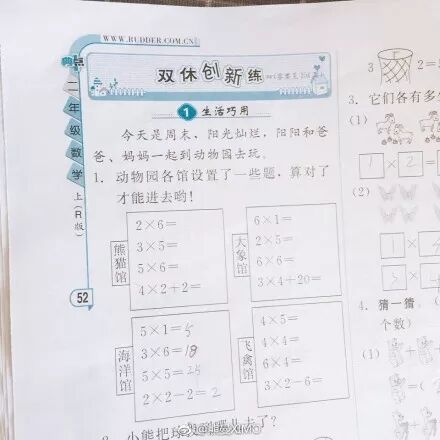 WWW.RUDDER.COM.CN
典点
二年级数学
上(R版)
52
双休创新练
1 生活巧用
今天是周末,阳光灿烂,阳阳和爸
爸、妈妈一起到动物园去玩。
1. 动物园各馆设置了一些题,算对了
才能进去哟!
熊猫馆
2×6=
3×5=
5×6=
4×2+2=
大象馆
6×1=
2×5=
6×6=
3×4+20=
海洋馆
5×1=5
3×6=18
5×5=25
2×2-2=2
飞禽馆
4×5=
4×4=
6×4=
3×2-6=
2. 小能把球
儿去了?
3
2=
3. 它们各有多少
(1)
1×2=
(2)
4. 猜一猜
个数)
(1)